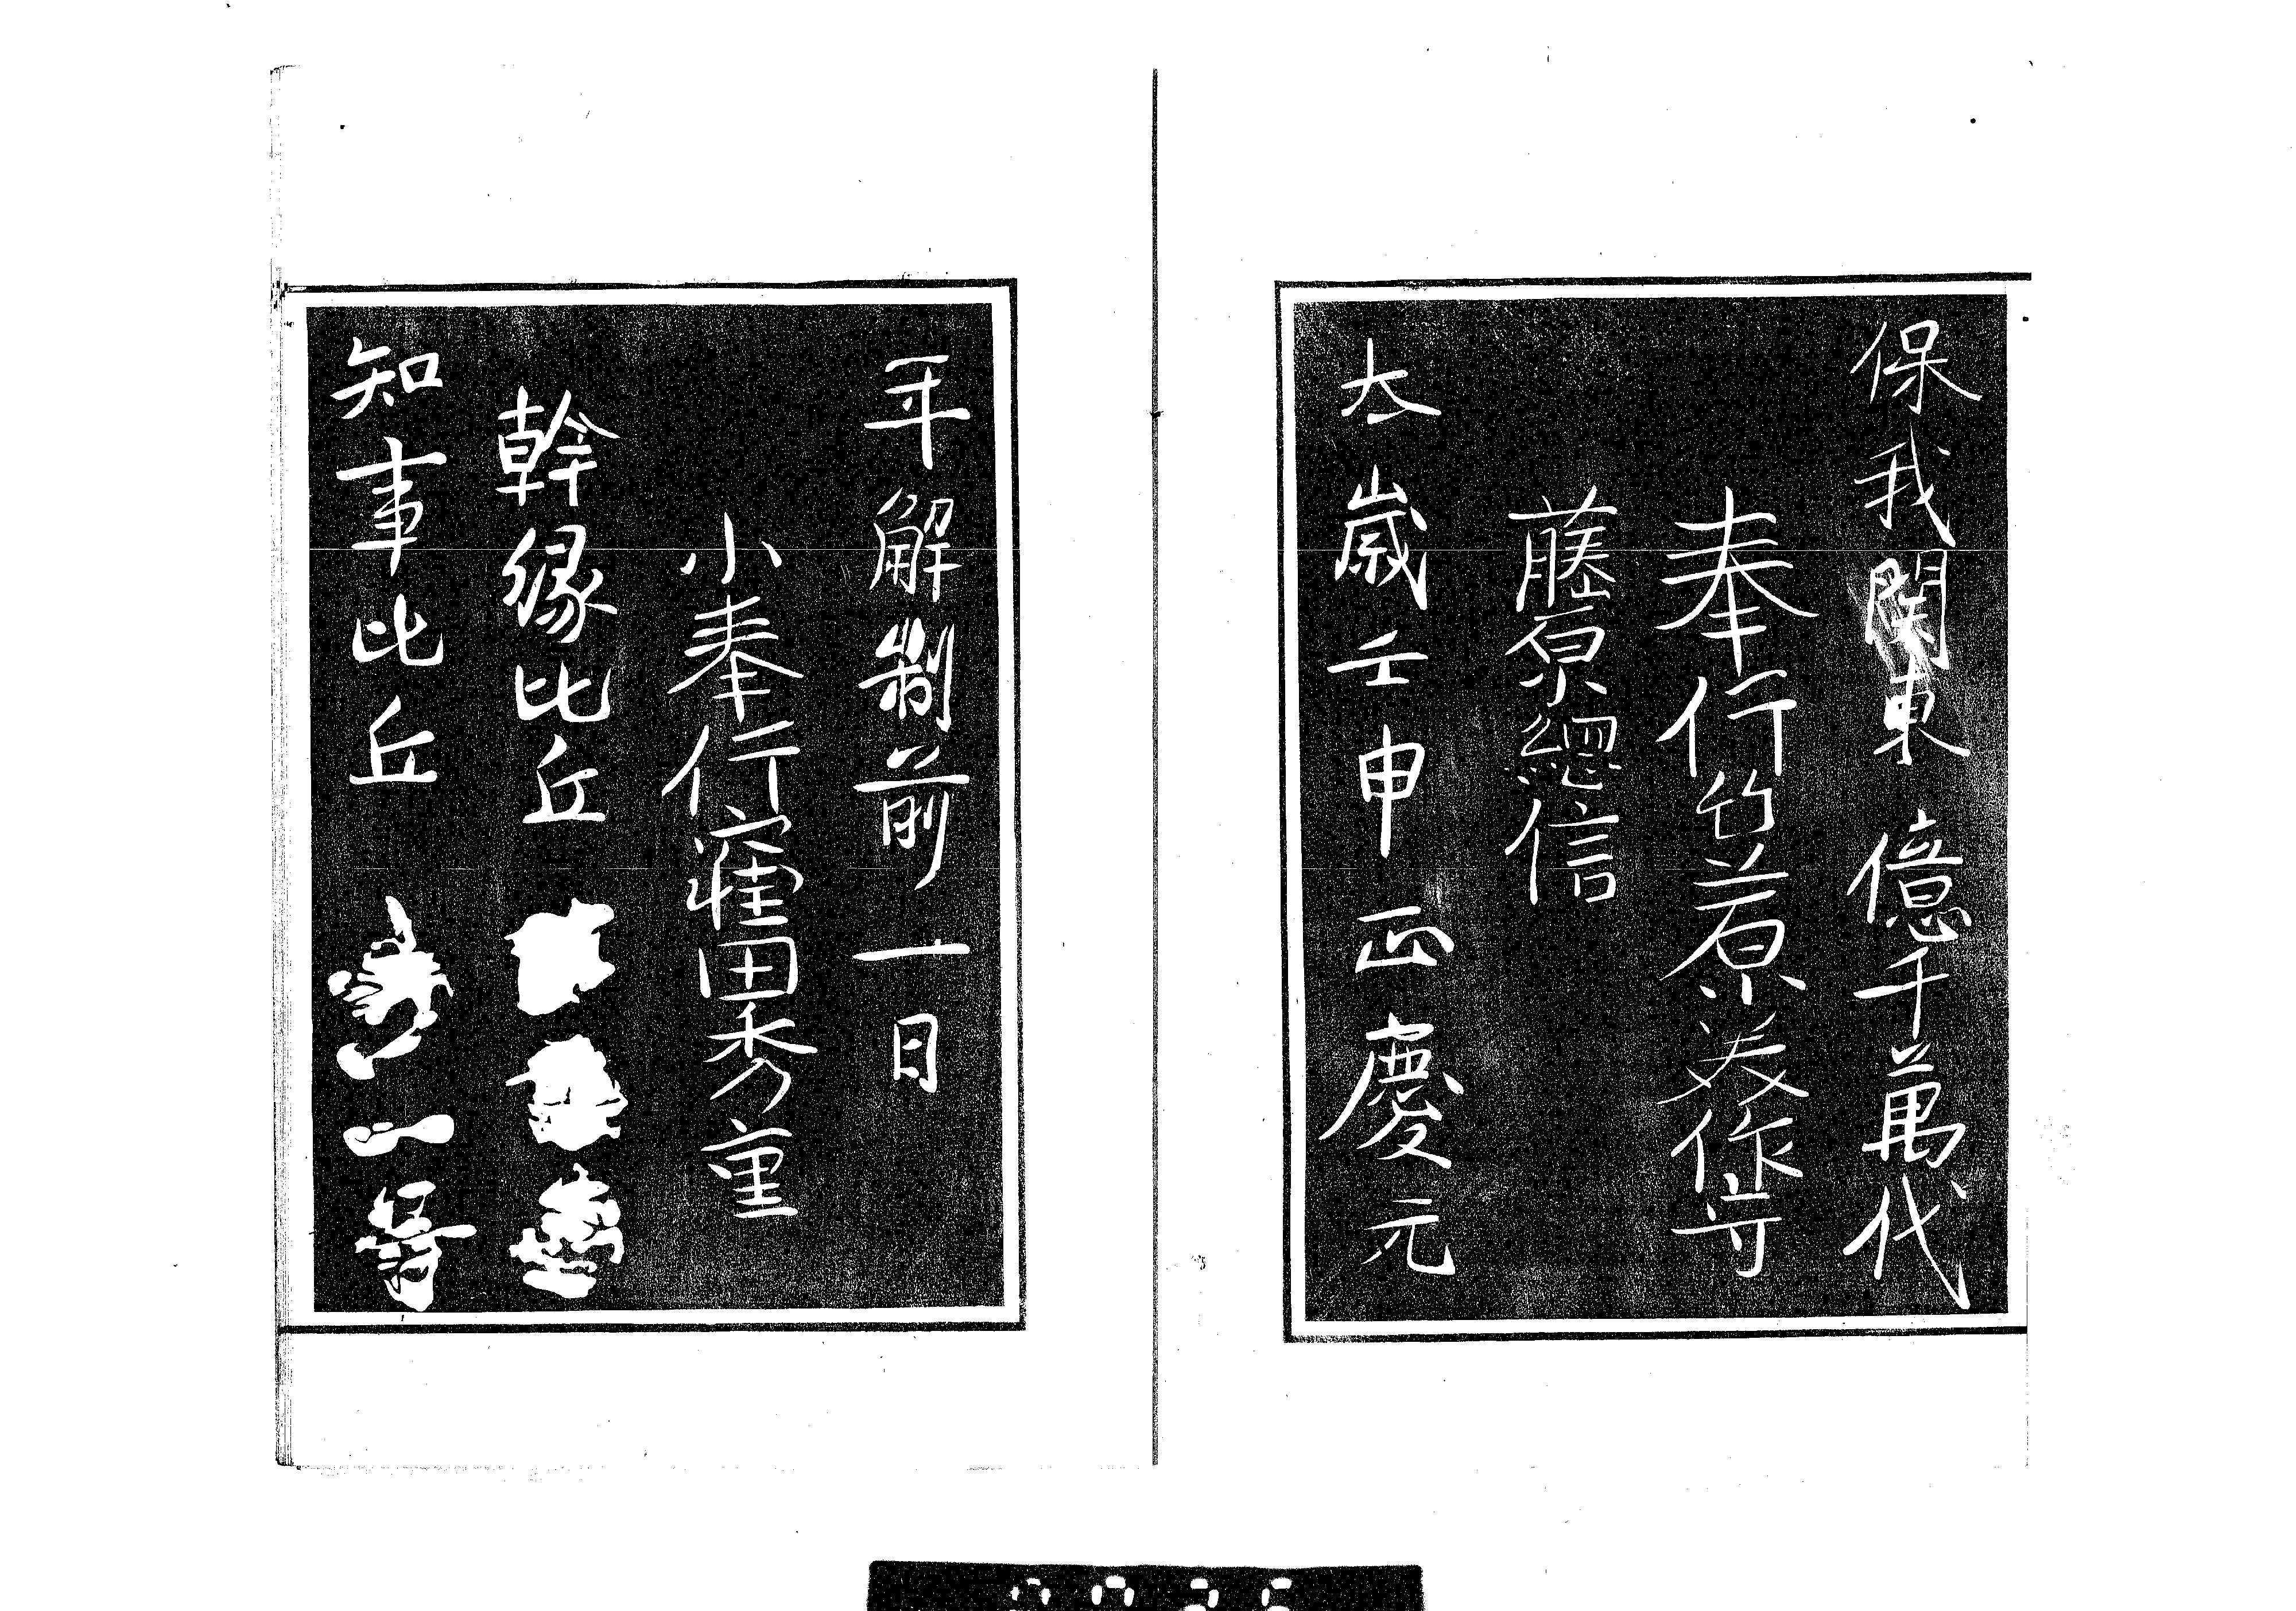 保我関東億千萬代
奉行竹原美作守
藤原總信
太歳壬申正慶元
年解制前一日
小奉行窪田秀重
幹縁比丘
知事比丘